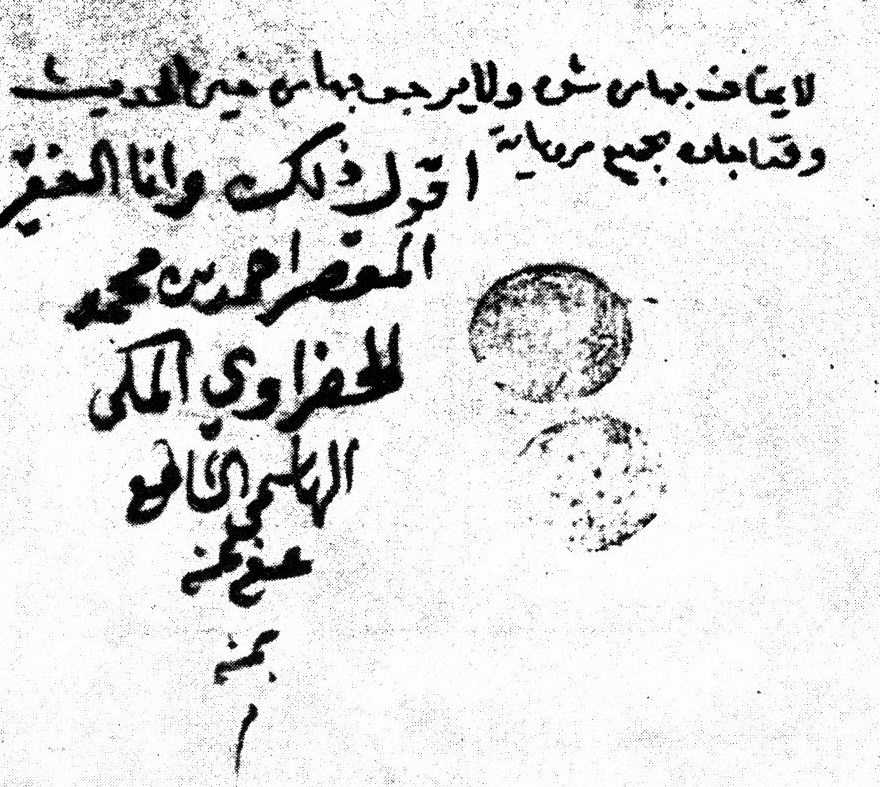 لا يعاف بهاس ش ولا يرجى بهاس غير الحديث
وقد اجاب بجميع مروياته
اقول ذلك وانا الفقير
المقصر احمد بن محمد
الحضراوي المكي
الهاشمي الشافعي
عفي عنه
بمنه
م